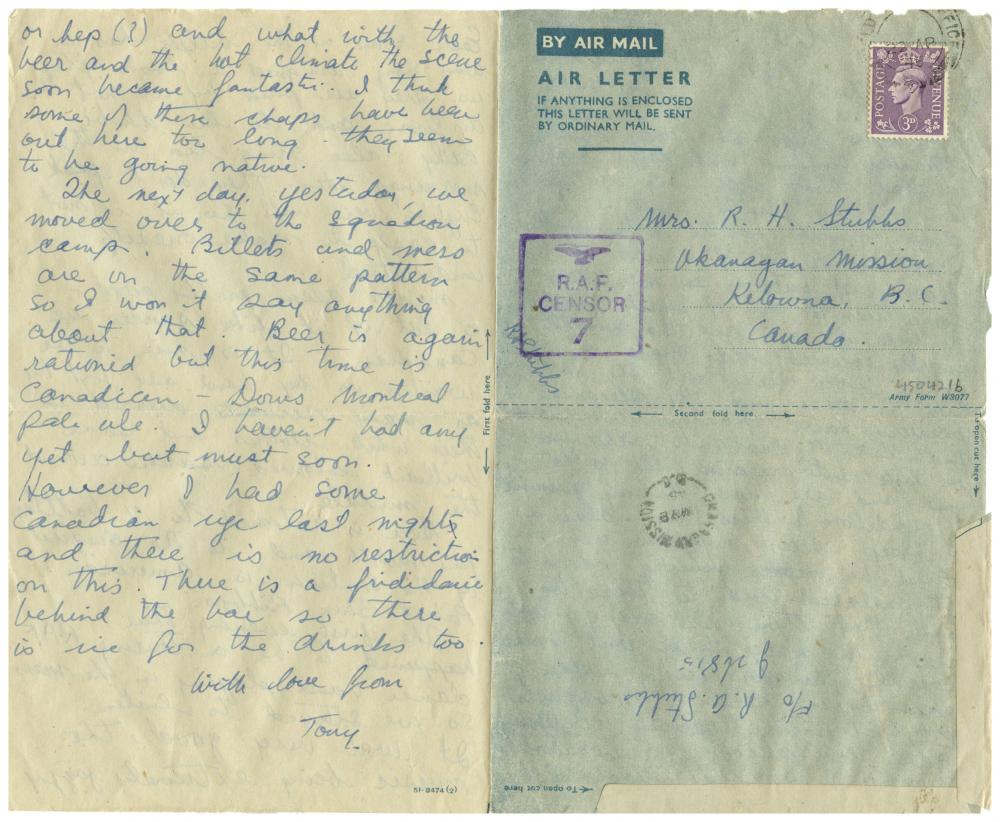 or hep (3) and what with the
beer and the hot climate the scene
soon became fantastic. I think
some of these chaps have been
out here too long - they seem
to be going native.
The next day, yesterday, we
moved over to the squadron
camp. Billets and mess
are on the same pattern
so I won't say anything
about that. Beer is again
rationed but this time is
Canadian - Dows Montreal
pale ale. I haven't had any
yet but must soon.
However I had some
Canadian rye last night
and there is no restriction
on this. There is a frididaire
behind the bar so there
is ice for the drinks too.
With love from
Tony
51-8474 (2)
BY AIR MAIL
AIR LETTER
IF ANYTHING IS ENCLOSED
THIS LETTER WILL BE SENT
BY ORDINARY MAIL.
POSTAGE REVENUE
3D
Mrs. R. H. Stubbs
Okanagan Mission
Kelowna, B.C.
Canada.
R.A.F.
CENSOR
7
Stubbs
4504216
Army Form W3077
First fold here
Second fold here
To open cut here
OKANAGAN MISSION
B.C.
F/O R.A. Stubbs
To open cut here